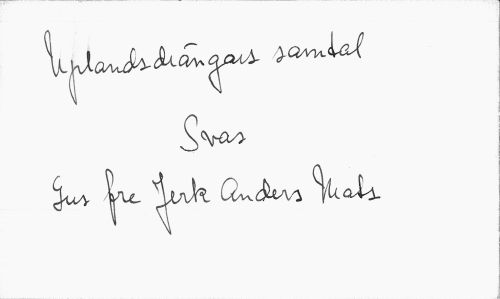 Uplandsdrängars samtal
Svas
Gus fre Jerk Anders Mats